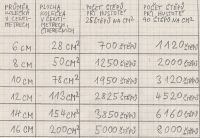 PRŮMĚR KOLEČKA V CENTIMETRECH
PLOCHA KOLEČKA V CENTIMETRECH ČTVEREČNÍCH
POČET ŠTĚPŮ PŘI HUSTOTĚ 25 ŠTĚPŮ NA CM²
POČET ŠTĚPŮ PŘI HUSTOTĚ 40 ŠTĚPŮ NA CM²
6 CM 28 CM² 700 ŠTĚPŮ 1120 ŠTĚPŮ
8 CM 50 CM² 1250 ŠTĚPŮ 2000 ŠTĚPŮ
10 CM 78 CM² 1950 ŠTĚPŮ 3120 ŠTĚPŮ
12 CM 113 CM² 2825 ŠTĚPŮ 4520 ŠTĚPŮ
14 CM 154 CM² 3850 ŠTĚPŮ 6160 ŠTĚPŮ
16 CM 200 CM² 5000 ŠTĚPŮ 8000 ŠTĚPŮ